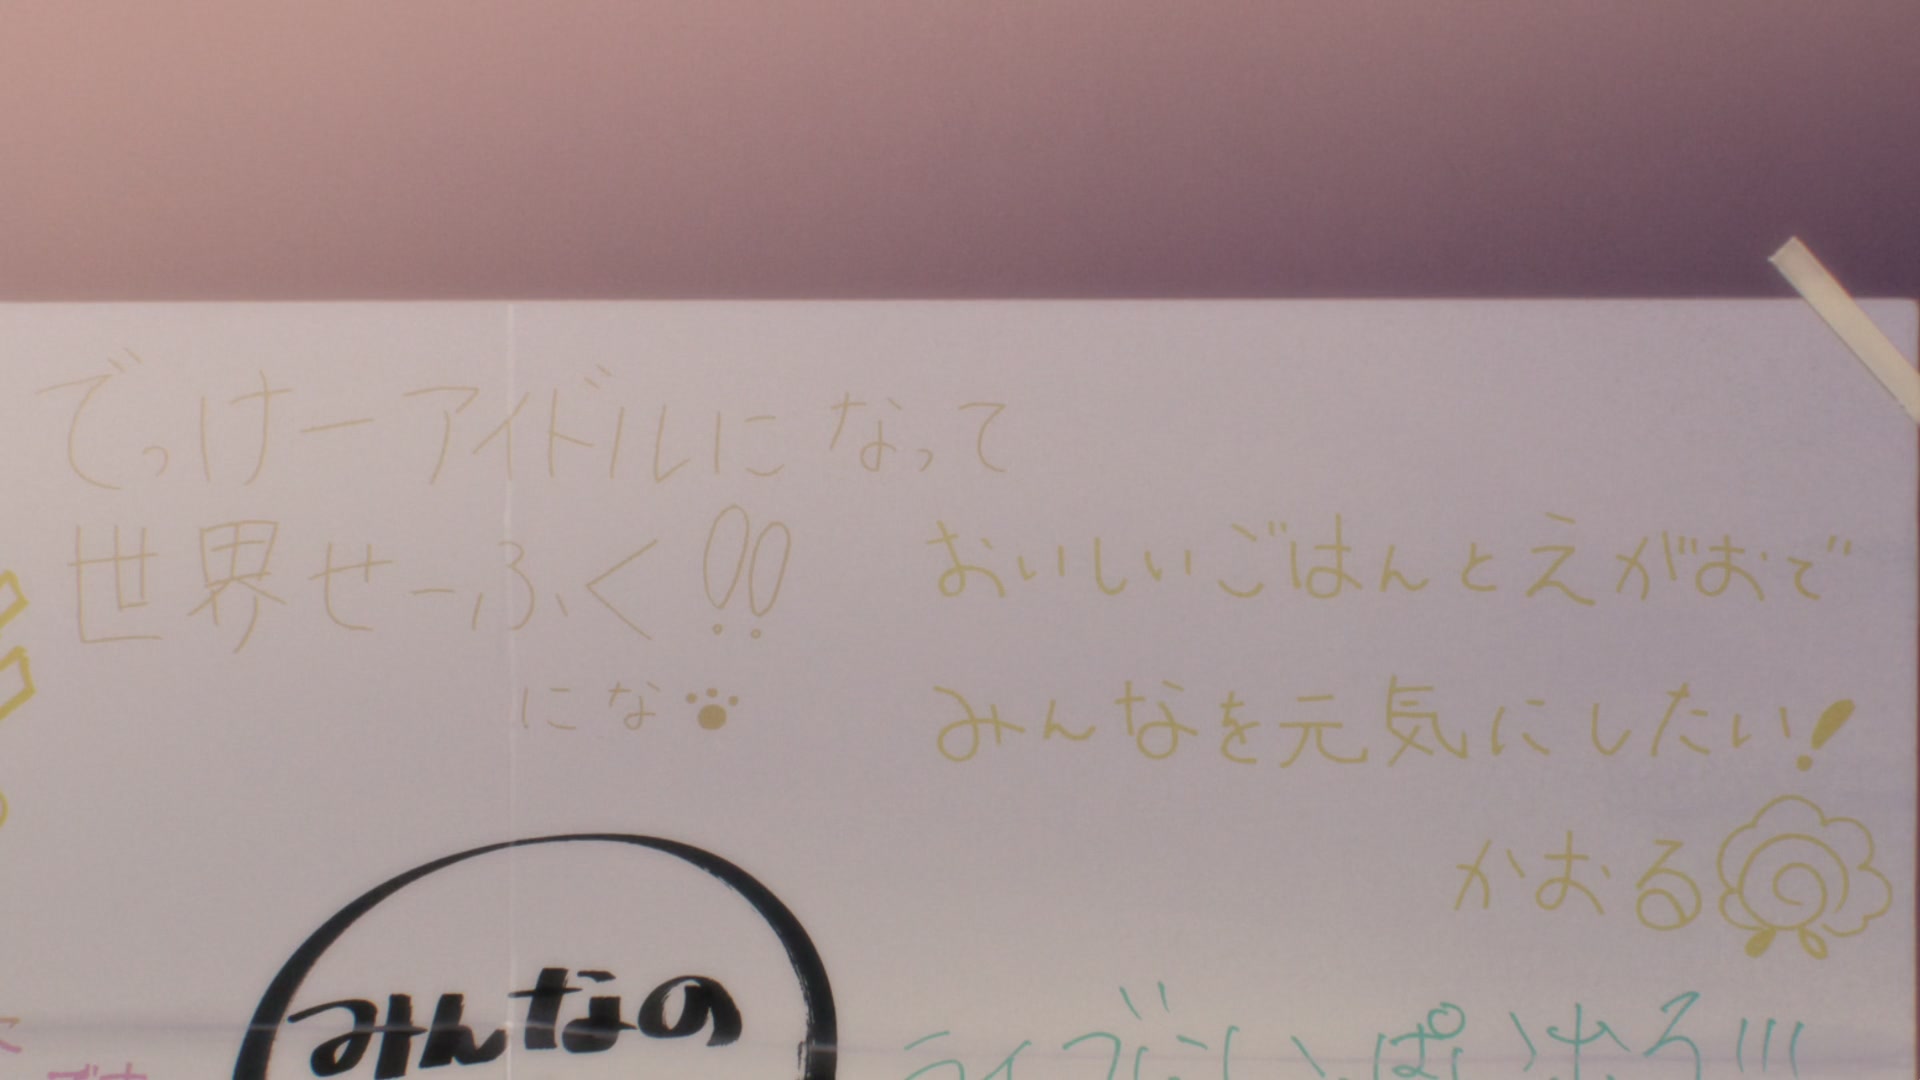 でっけーアイドルになって
世界せーふく!!
にな
おいしいごはんとえがおで
みんなを元気にしたい!
かおる
みんなの
ライブにいっぱい出る!!!